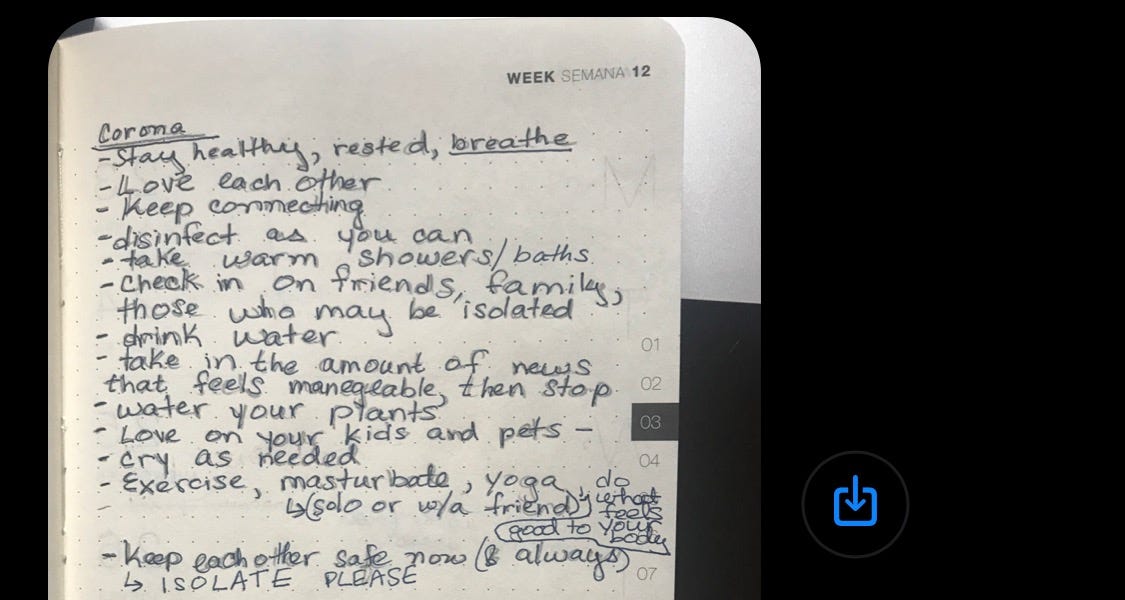 WEEK SEMANA 12
Corona
- Stay healthy, rested, breathe
- Love each other
- Keep connecting
- disinfect as you can
- take warm showers/baths
- Check in on friends, family,
those who may be isolated
- drink water
- take in the amount of news
that feels manegeable, then stop
- water your plants
- Love on your kids and pets -
- cry as needed
- Exercise, masturbate, yoga, do
↳(solo or w/a friend) what
feels
good to your
body
- Keep each other safe now (& always)
↳ ISOLATE PLEASE
01
02
03
04
07